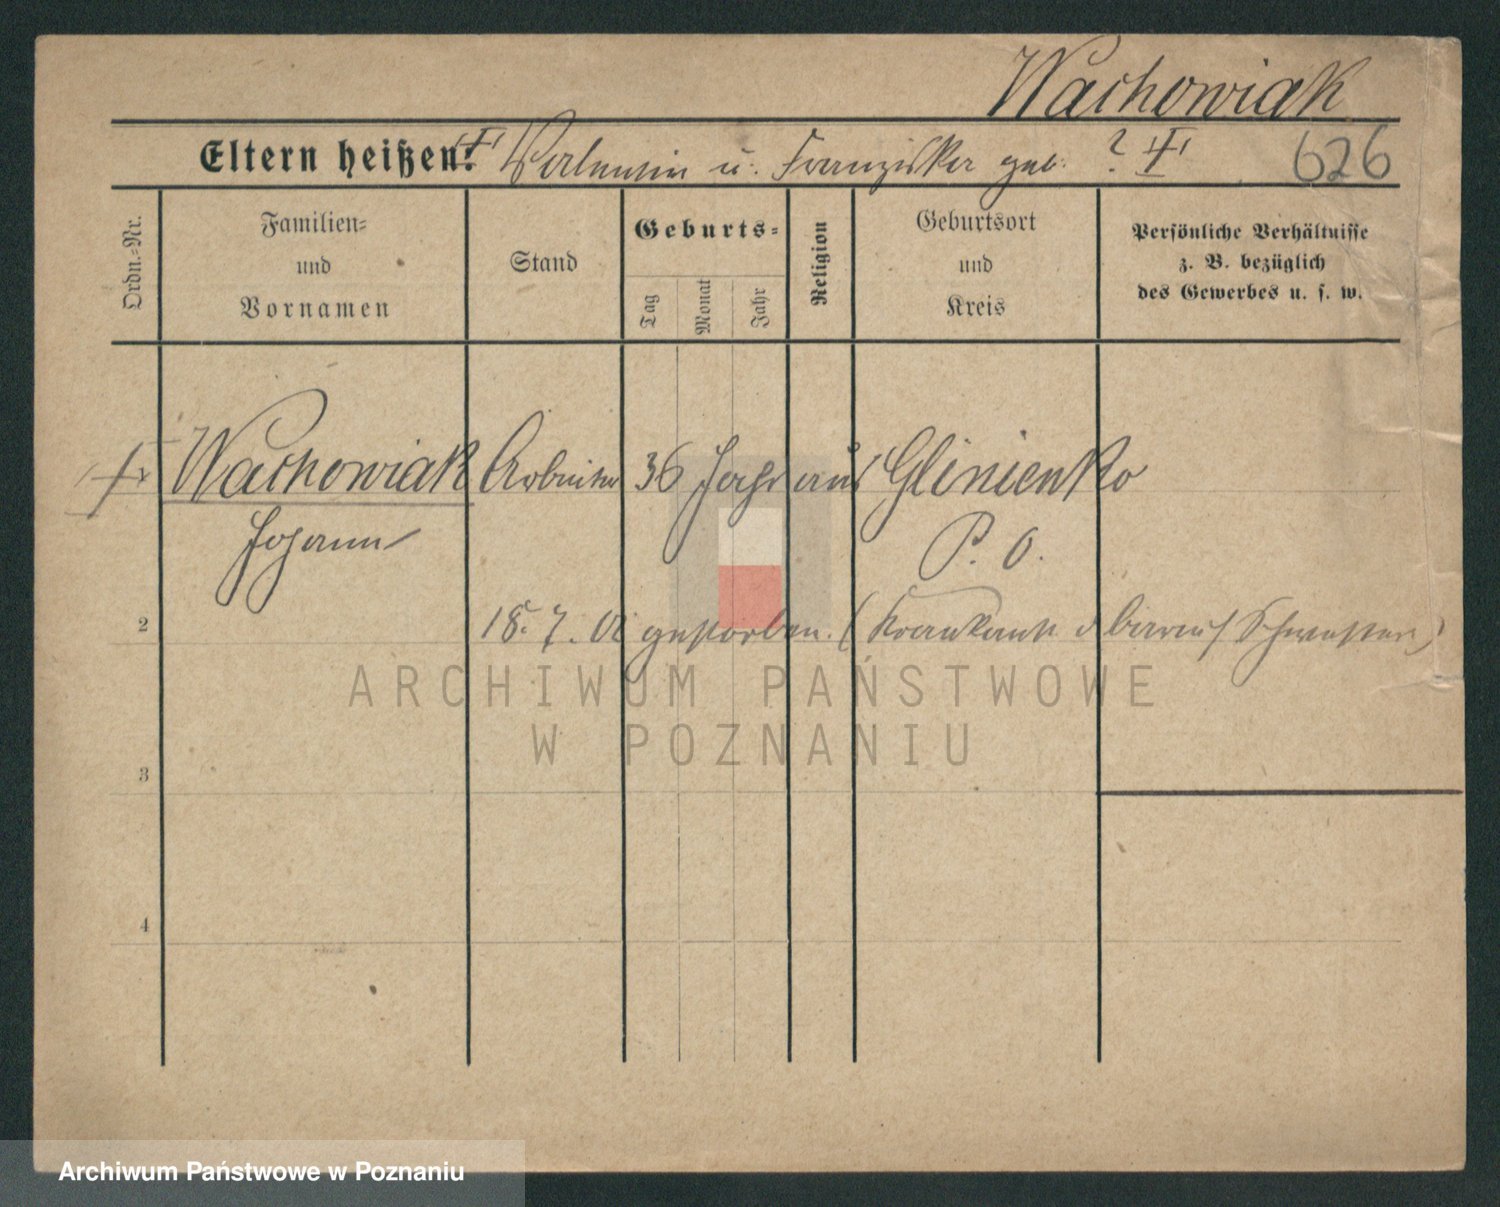 Wachowiak
Eltern heißen: Valentin u. Franziska geb. ?
626
Ordn.=Nr.
Familien=
und
Vornamen
Stand
Geburts=
Tag
Monat
Jahr
Religion
Geburtsort
und
Kreis
Persönliche Verhältnisse
z. B. bezüglich
des Gewerbes u. s. w.
Wachowiak Arbeiter 36 Jahr aus Glinienko
Johann
P. O.
2
18. 7. 01 gestorben. (Krankenh. d barmh Schwestern)
3
4
ARCHIWUM PAŃSTWOWE
W POZNANIU
Archiwum Państwowe w Poznaniu